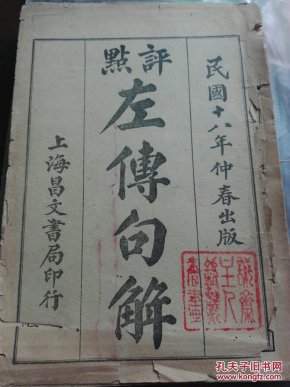 民國十八年仲春出版
評點
左傳句解
上海昌文書局印行
孔夫子旧书网